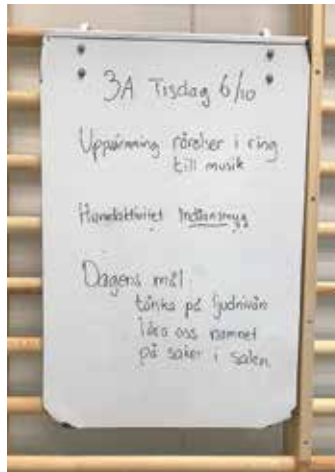 3A Tisdag 6/10
Uppvärmning rörelser i ring
till musik
Huvudaktivitet Indiansmyg
Dagens mål
tänka på ljudnivån
lära oss namnet
på saker i salen